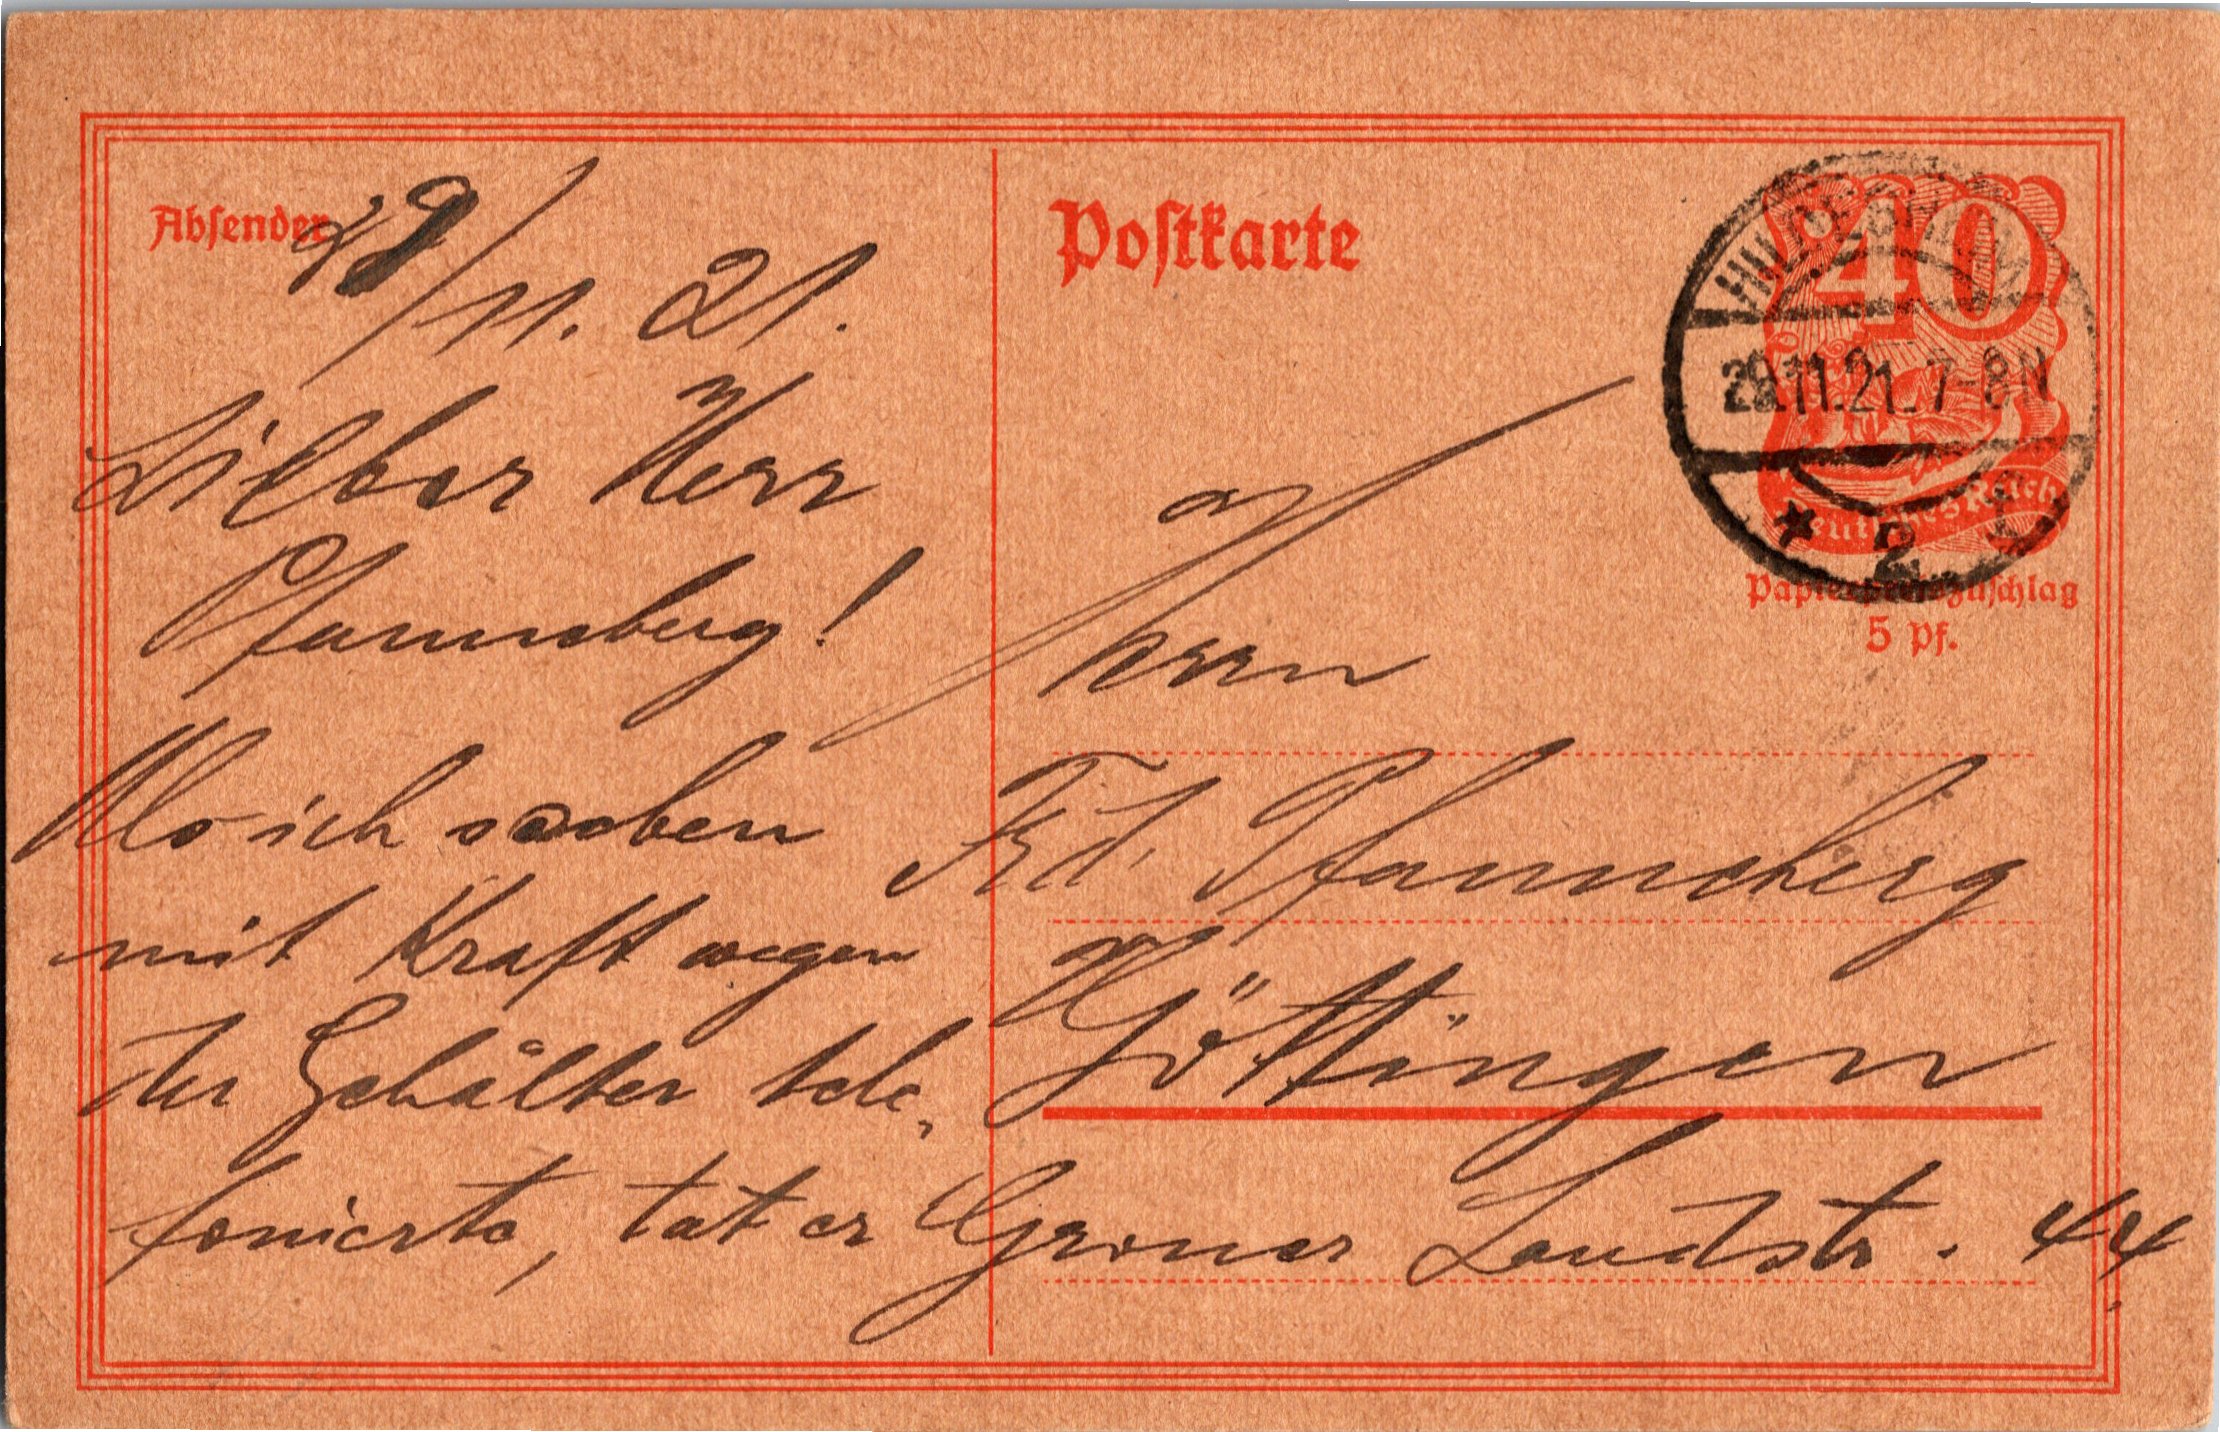 Absender
29/11. 21.
Lieber Herr
Pfanneberg!
Als ich soeben
mit Kraft wegen
der Gehälter tele-
fonierte, tat er
Postkarte
40
Deutsches Reich
HILDESHEIM
29.11.21. 7-8N
* 2
Papierpreiszuschlag
5 Pf.
Herrn
Frd. Pfanneberg
Göttingen
Groner Landstr. 44